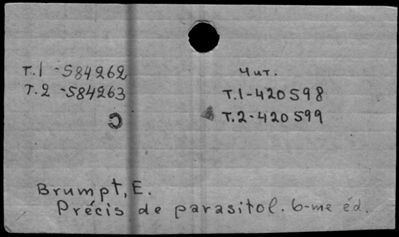 т.1 -584262
т.2 -584263
Чит.
т.1-420598
т.2-420599
Brumpt, E.
Précis de parasitol. 6-me éd.